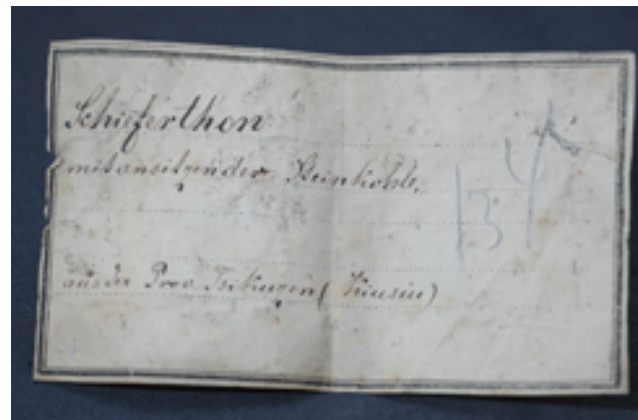 Schieferthon
mitansitzender Steinkohle,
134
aus der Prov. Tsikuzen (Kiusiu)